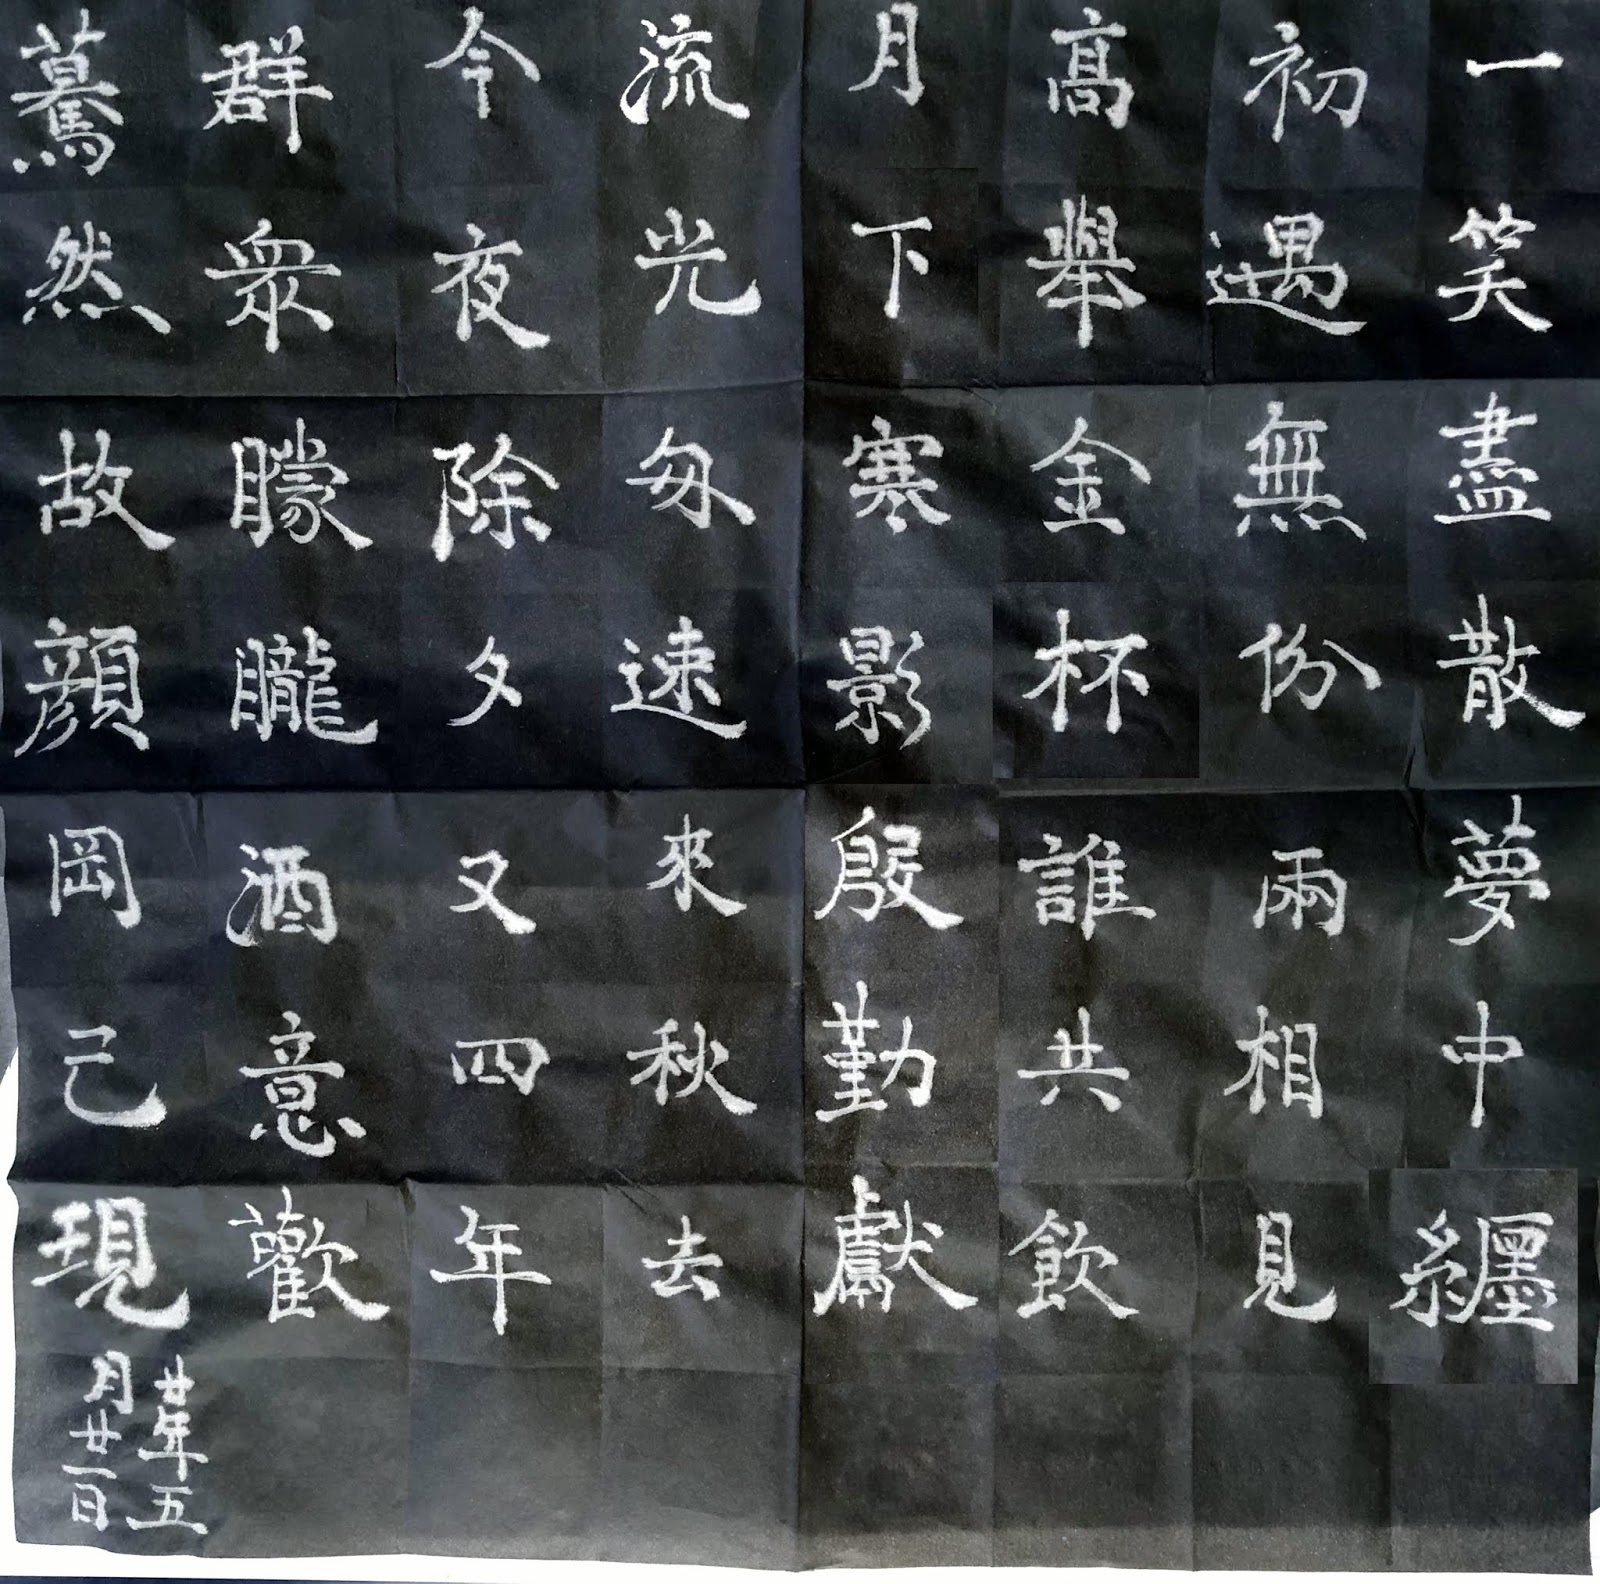 一笑盡散夢中纏
初遇無份兩相見
髙舉金杯誰共飲
月下寒影殷勤獻
流光匆速來秋去
今夜除夕又四年
群衆矇矓酒意歡
驀然故顏岡己現
廿年五
月廿一日